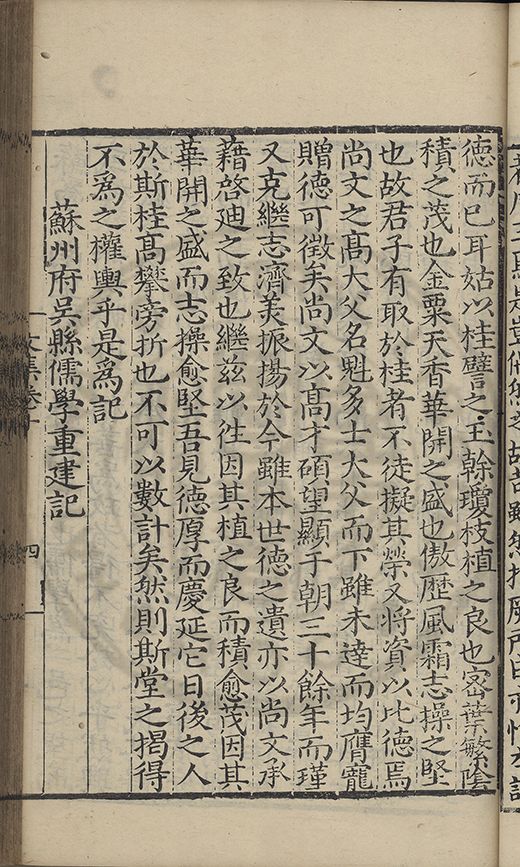 德而已耳姑以桂譬之玉榦瓊枝植之良也宻葉繁陰
積之茂也金粟天香華開之盛也傲歷風霜志操之堅
也故君子有取於桂者不徒擬其榮又將資以比德焉
尚文之髙大父名魁多士大父而下雖未達而均膺寵
贈德可徵矣尚文以髙才碩望顯于朝三十餘年而瑾
又克繼志濟美振揚於今雖本世德之遺亦以尚文承
藉啓廸之致也繼兹以徃因其植之良而積愈茂因其
華開之盛而志操愈堅吾見德厚而慶延它日後之人
於斯桂髙攀旁折也不可以數計矣然則斯堂之揭得
不為之權輿乎是為記
蘇州府吳縣儒學重建記
文集卷十
四